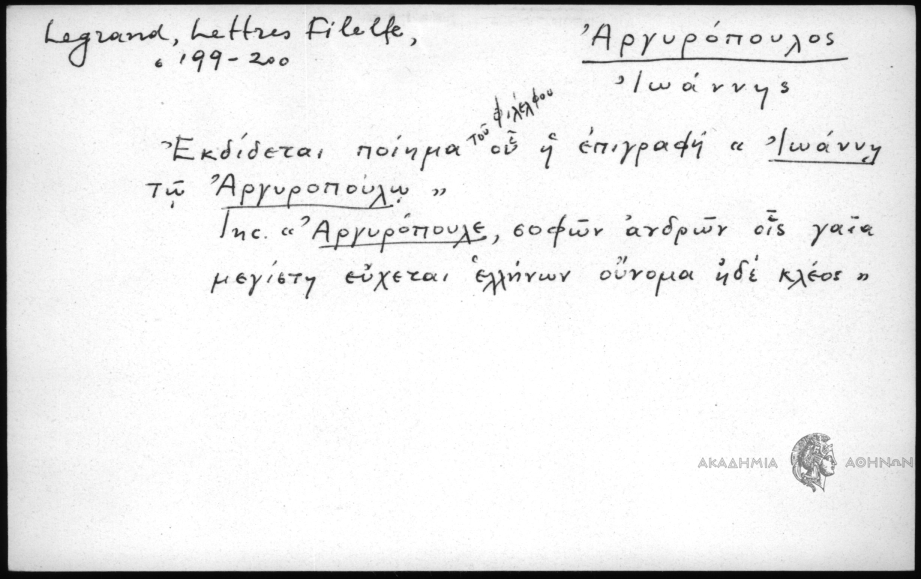 Legrand, Lettres Filelfe,
σ 199-200
Ἀργυρόπουλος
Ἰωάννης
Ἐκδίδεται ποίημα τοῦ Φιλέλφου οὗ ἡ ἐπιγραφή « Ἰωάννῃ
τῷ Ἀργυροπούλῳ »
Ἰης. « Ἀργυρόπουλε, σοφῶν ἀνδρῶν οἷς γαῖα
μεγίστη εὔχεται ἑλλήνων οὔνομα ἠδέ κλέος »
ΑΚΑΔΗΜΙΑ ΑΘΗΝΩΝ